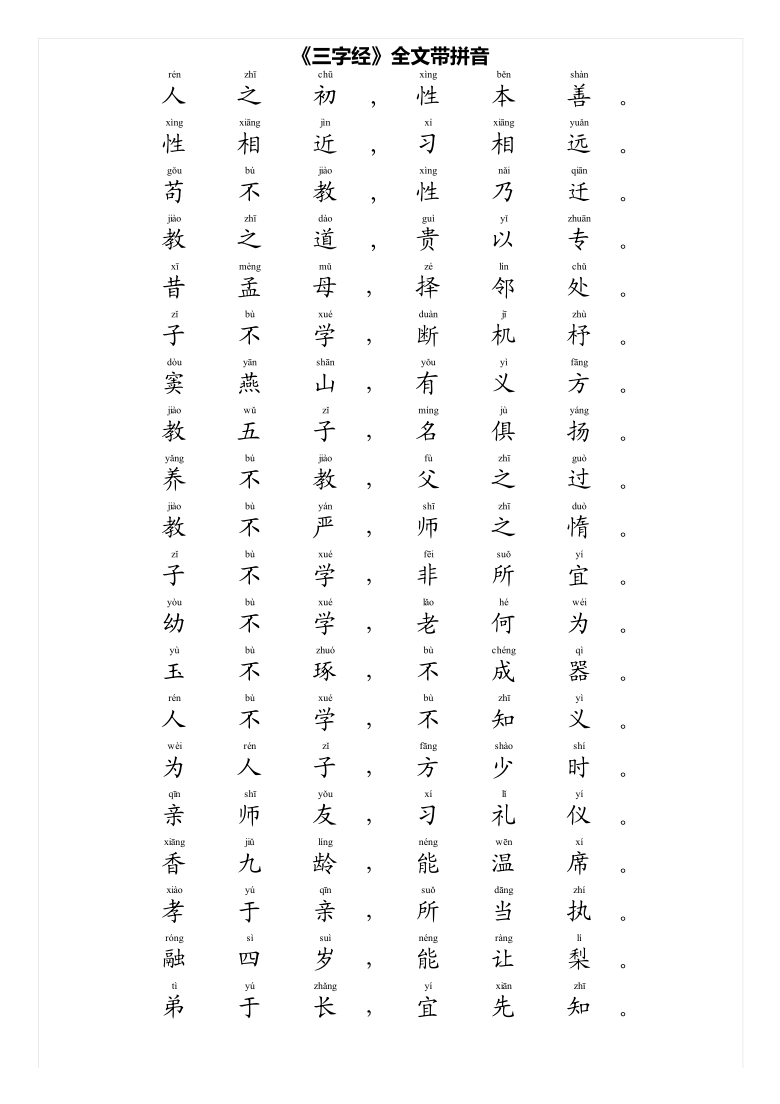 《三字经》全文带拼音
rén zhī chū xìng běn shàn
人之初，性本善。
xìng xiāng jìn xí xiāng yuǎn
性相近，习相远。
gǒu bú jiào xìng nǎi qiān
苟不教，性乃迁。
jiào zhī dào guì yǐ zhuān
教之道，贵以专。
xī mèng mǔ zé lín chǔ
昔孟母，择邻处。
zǐ bù xué duàn jī zhù
子不学，断机杼。
dòu yān shān yǒu yì fāng
窦燕山，有义方。
jiào wǔ zǐ míng jù yáng
教五子，名俱扬。
yǎng bú jiào fù zhī guò
养不教，父之过。
jiào bù yán shī zhī duò
教不严，师之惰。
zǐ bù xué fēi suǒ yí
子不学，非所宜。
yòu bù xué lǎo hé wéi
幼不学，老何为。
yù bù zhuó bù chéng qì
玉不琢，不成器。
rén bù xué bù zhī yì
人不学，不知义。
wèi rén zǐ fāng shào shí
为人子，方少时。
qīn shī yǒu xí lǐ yí
亲师友，习礼仪。
xiāng jiǔ líng néng wēn xí
香九龄，能温席。
xiào yú qīn suǒ dāng zhí
孝于亲，所当执。
róng sì suì néng ràng lí
融四岁，能让梨。
tì yú zhǎng yí xiān zhī
弟于长，宜先知。